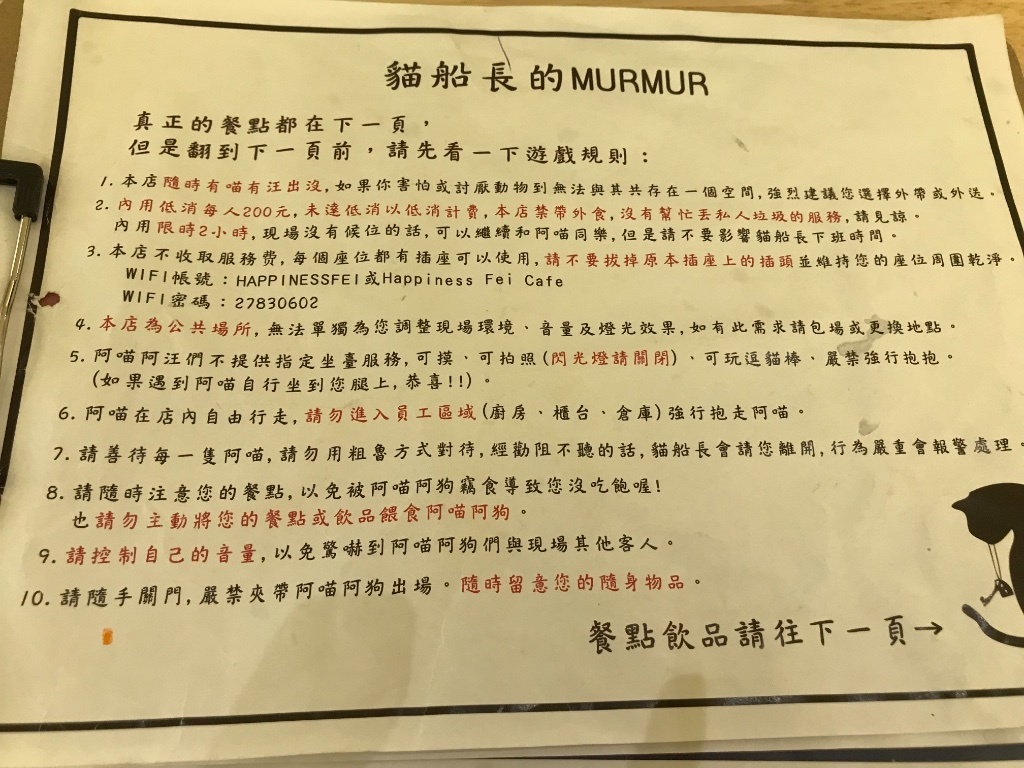 貓船長的MURMUR
真正的餐點都在下一頁，
但是翻到下一頁前，請先看一下遊戲規則：
1. 本店隨時有喵有汪出沒,如果你害怕或討厭動物到無法與其共存在一個空間,強烈建議您選擇外帶或外送。
2. 內用低消每人200元,未達低消以低消計費,本店禁帶外食,沒有幫忙丟私人垃圾的服務,請見諒。
內用限時2小時,現場沒有候位的話,可以繼續和阿喵同樂,但是請不要影響貓船長下班時間。
3. 本店不收取服務費,每個座位都有插座可以使用,請不要拔掉原本插座上的插頭並維持您的座位周圍乾淨。
WIFI帳號：HAPPINESSFEI或Happiness Fei Cafe
WIFI密碼：27830602
4. 本店為公共場所,無法單獨為您調整現場環境、音量及燈光效果,如有此需求請包場或更換地點。
5. 阿喵阿汪們不提供指定坐臺服務,可摸、可拍照(閃光燈請關閉)、可玩逗貓棒、嚴禁強行抱抱。
(如果遇到阿喵自行坐到您腿上,恭喜!!)。
6. 阿喵在店內自由行走,請勿進入員工區域(廚房、櫃台、倉庫)強行抱走阿喵。
7. 請善待每一隻阿喵,請勿用粗魯方式對待,經勸阻不聽的話,貓船長會請您離開,行為嚴重會報警處理。
8. 請隨時注意您的餐點,以免被阿喵阿狗竊食導致您沒吃飽喔!
也請勿主動將您的餐點或飲品餵食阿喵阿狗。
9. 請控制自己的音量,以免驚嚇到阿喵阿狗們與現場其他客人。
10. 請隨手關門,嚴禁夾帶阿喵阿狗出場。隨時留意您的隨身物品。
餐點飲品請往下一頁→